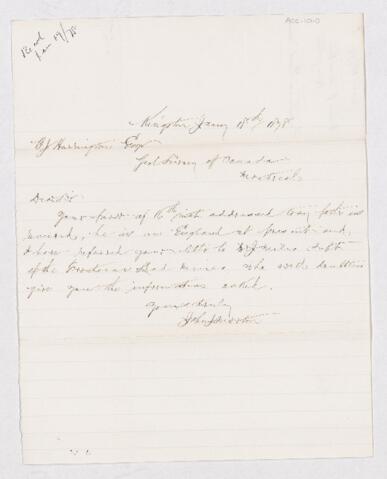 Recd
Jan 19/78
ACC-1010
Kingston Jany 18th 1878
B J Harrington Esqr
Geol Survey of Canada
Montreal
Dear Sir
Your favor of 16th inst addressed to my father is
received, he is in England at present and
I have referred your letter to
of the Frontenac Lead who will doubtless
give you the information asked.
Yours truly
John